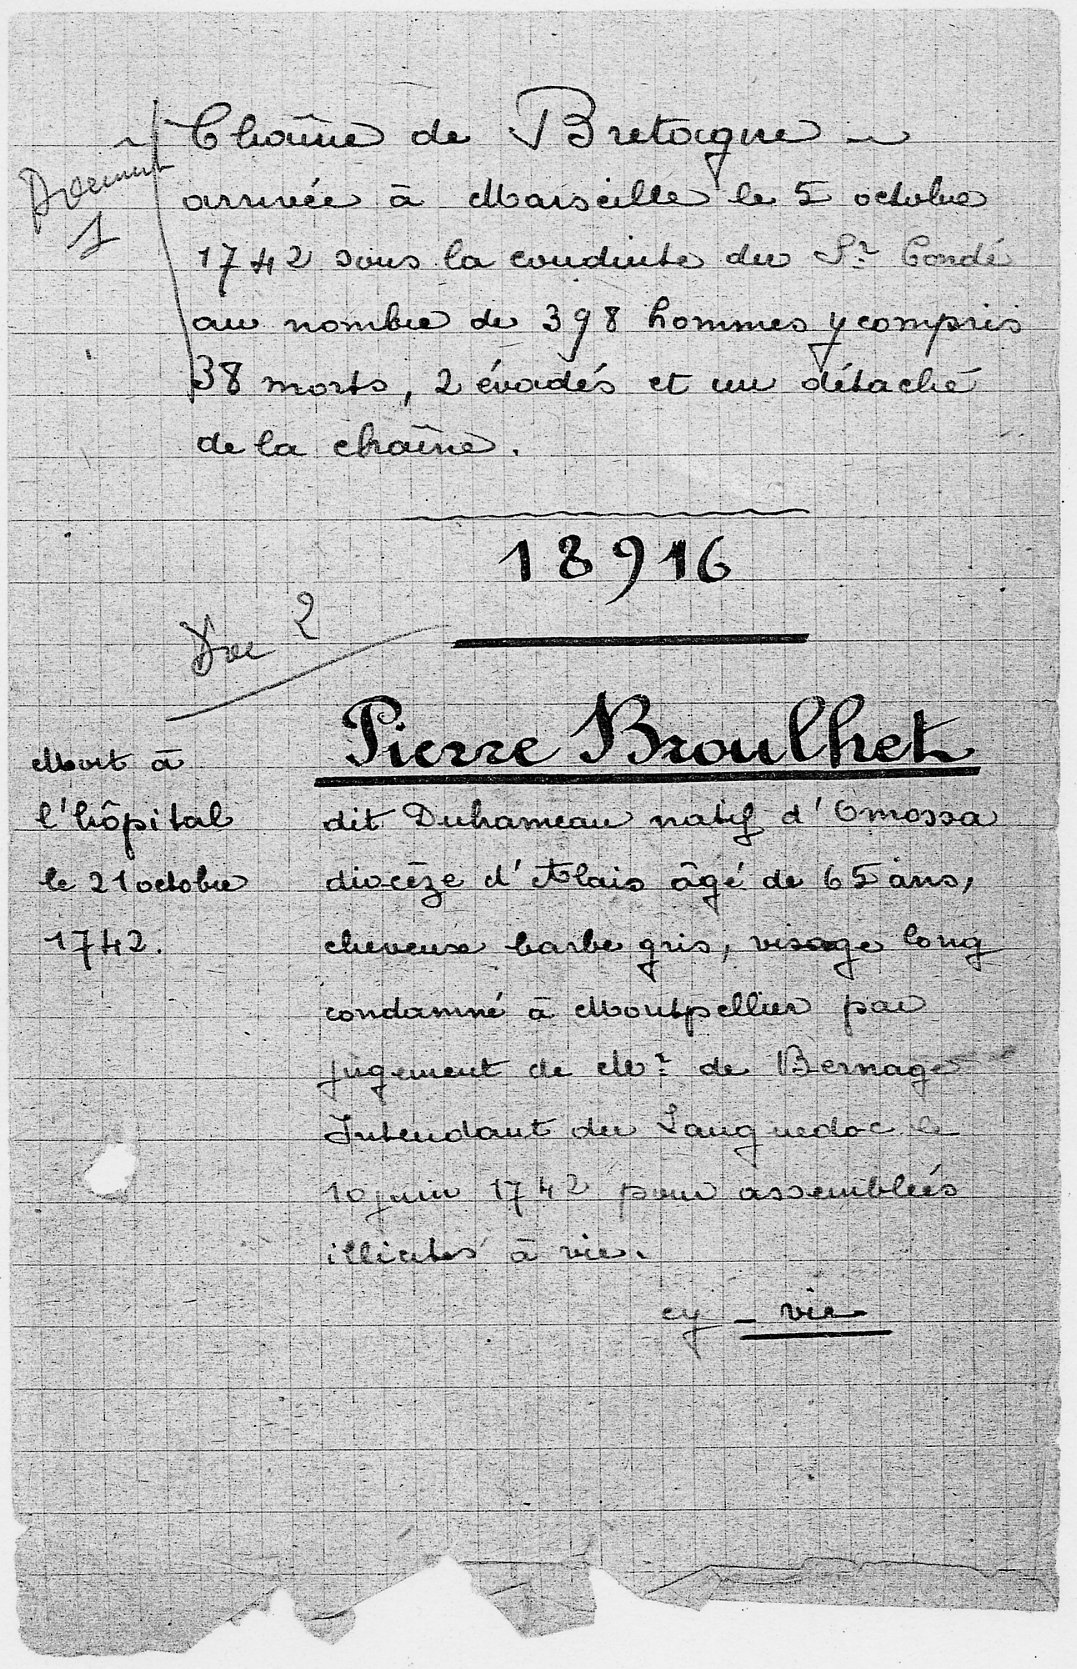 Chaîne de Bretagne
Document
1
arrivée à Marseille le 5 octobre
1742 sous la conduite du Sr Condé
au nombre de 398 hommes y compris
38 morts, 2 évadés et un détaché
de la chaîne.
18916
Doc 2
Pierre Broulhet
Mort à
l'hôpital
le 21 octobre
1742.
dit Duhameau natif d'Omossa
diocèze d'Alais âgé de 65 ans,
cheveux barbe gris, visage long
condamné à Montpellier par
jugement de Mr de Bernage
Intendant du Languedoc le
10 juin 1742 pour assemblées
illicites à vie.
cy - vie